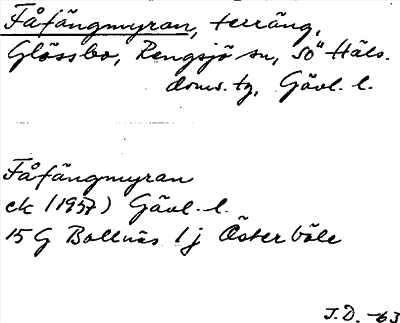 Fåfängmyran, terräng,
Glössbo, Rengsjö sn, SÖ Häls.
doms. tg, Gävl. l.
Fåfängmyran
ek (1957) Gävl. l.
15 G Bollnäs 1 j Österböle
J.D. -63